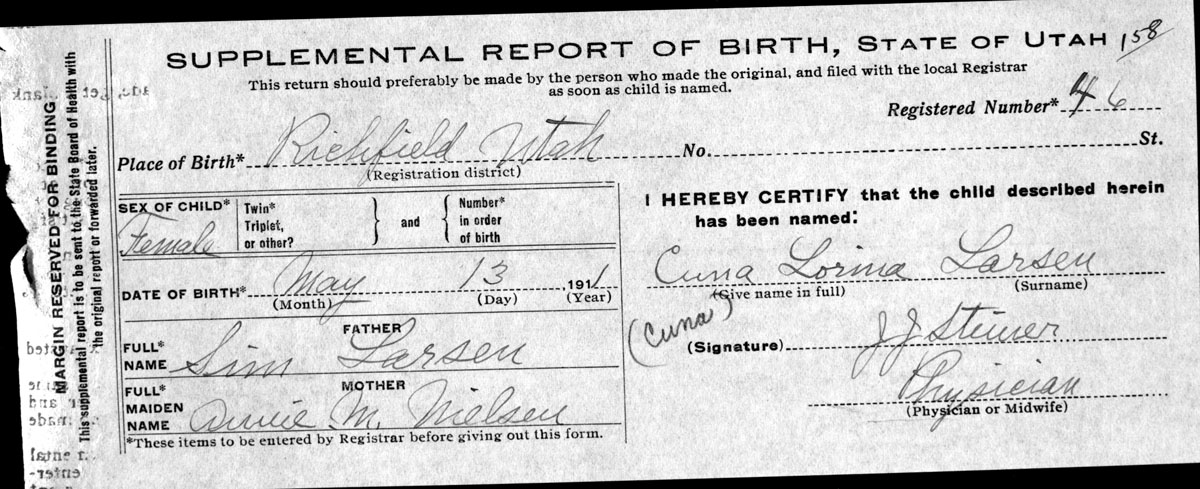 SUPPLEMENTAL REPORT OF BIRTH, STATE OF UTAH 158
This return should preferably be made by the person who made the original, and filed with the local Registrar
as soon as child is named.
Registered Number* 46
Place of Birth* Richfield Utah No. St.
(Registration district)
SEX OF CHILD* Female
Twin* Triplet, or other? } and { Number* in order of birth
DATE OF BIRTH* May 13 1911
(Month) (Day) (Year)
FATHER
FULL* NAME Sim Larsen
MOTHER
FULL* MAIDEN NAME Annie M. Nielsen
*These items to be entered by Registrar before giving out this form.
I HEREBY CERTIFY that the child described herein
has been named:
Cuna Lorina Larsen
(Give name in full) (Surname)
(Cuna)
(Signature) J J Steiner
Physician
(Physician or Midwife)
MARGIN RESERVED FOR BINDING
This supplemental report is to be sent to the State Board of Health with
the original report or forwarded later.